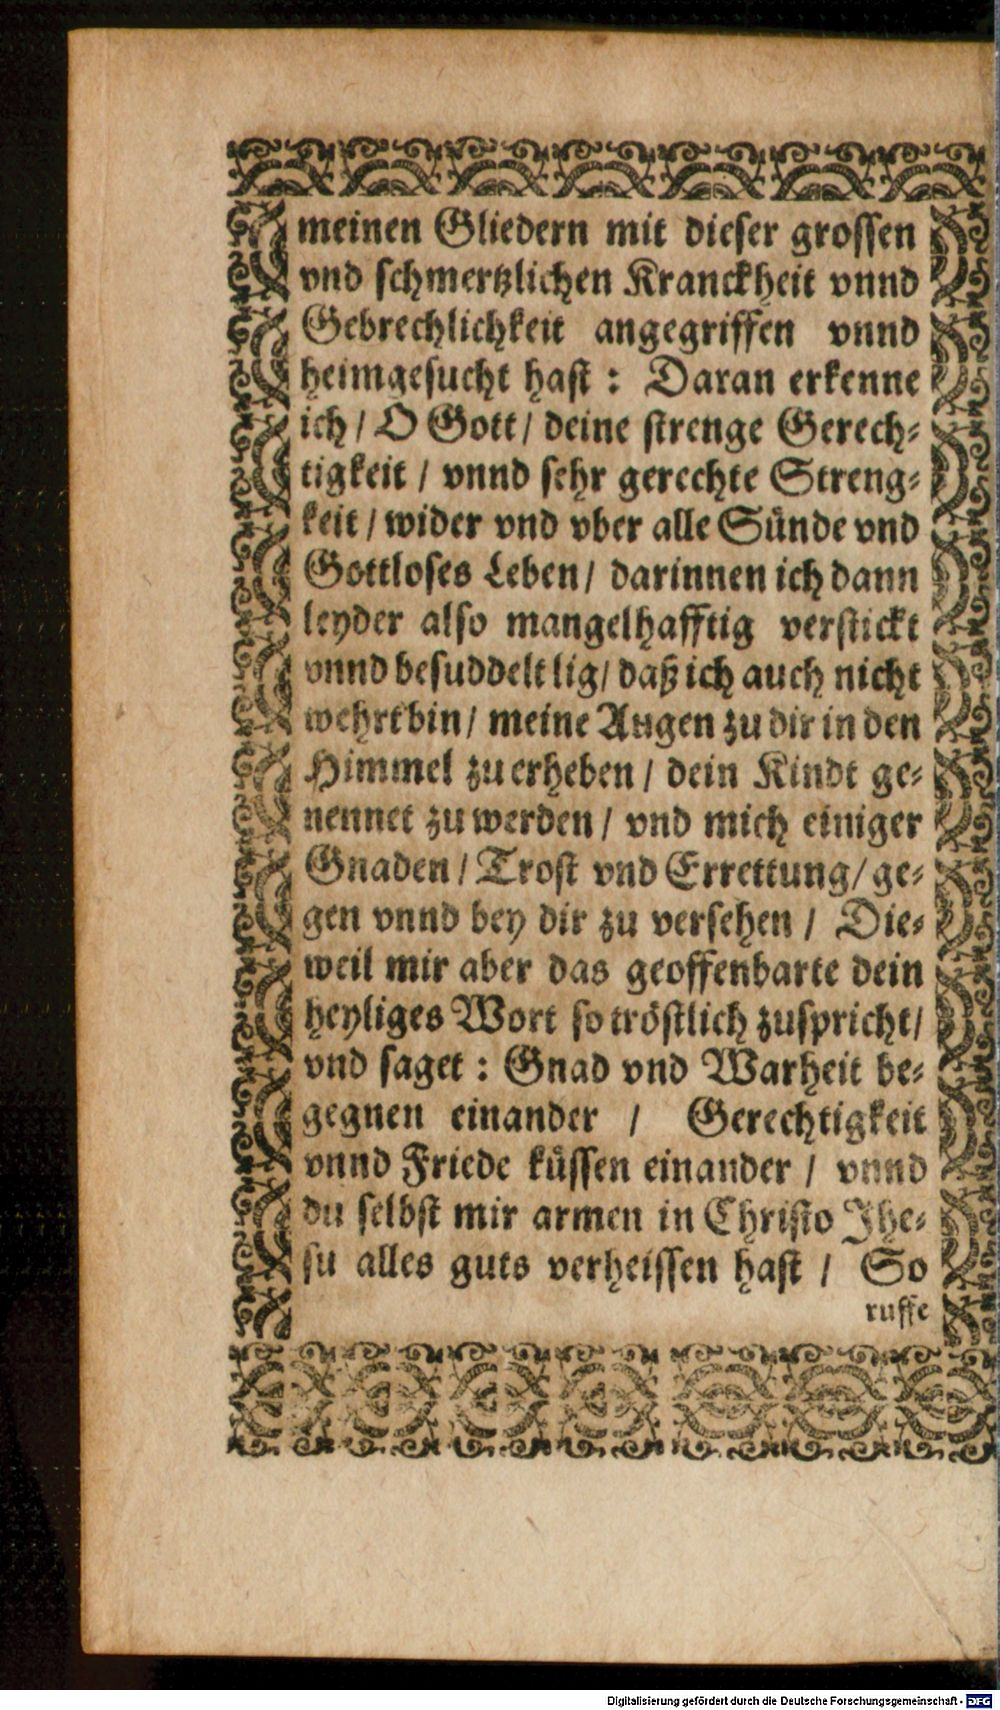 meinen Gliedern mit dieser grossen
vnd schmertzlichen Kranckheit vnnd
Gebrechlichkeit angegriffen vnnd
heimgesucht hast : Daran erkenne
ich / O Gott / deine strenge Gerech⸗
tigkeit / vnnd sehr gerechte Streng⸗
keit / wider vnd vber alle Sünde vnd
Gottloses Leben / darinnen ich dann
leyder also mangelhafftig verstickt
vnnd besuddelt lig / daß ich auch nicht
wehrt bin / meine Augen zu dir in den
Himmel zu erheben / dein Kindt ge⸗
nennet zu werden / vnd mich einiger
Gnaden / Trost vnd Errettung / ge⸗
gen vnnd bey dir zu versehen / Die⸗
weil mir aber das geoffenbarte dein
heyliges Wort so tröstlich zuspricht /
vnd saget : Gnad vnd Warheit be⸗
gegnen einander / Gerechtigkeit
vnnd Friede küssen einander / vnnd
du selbst mir armen in Christo Jhe⸗
su alles guts verheissen hast / So
ruffe
Digitalisierung gefördert durch die Deutsche Forschungsgemeinschaft - DFG